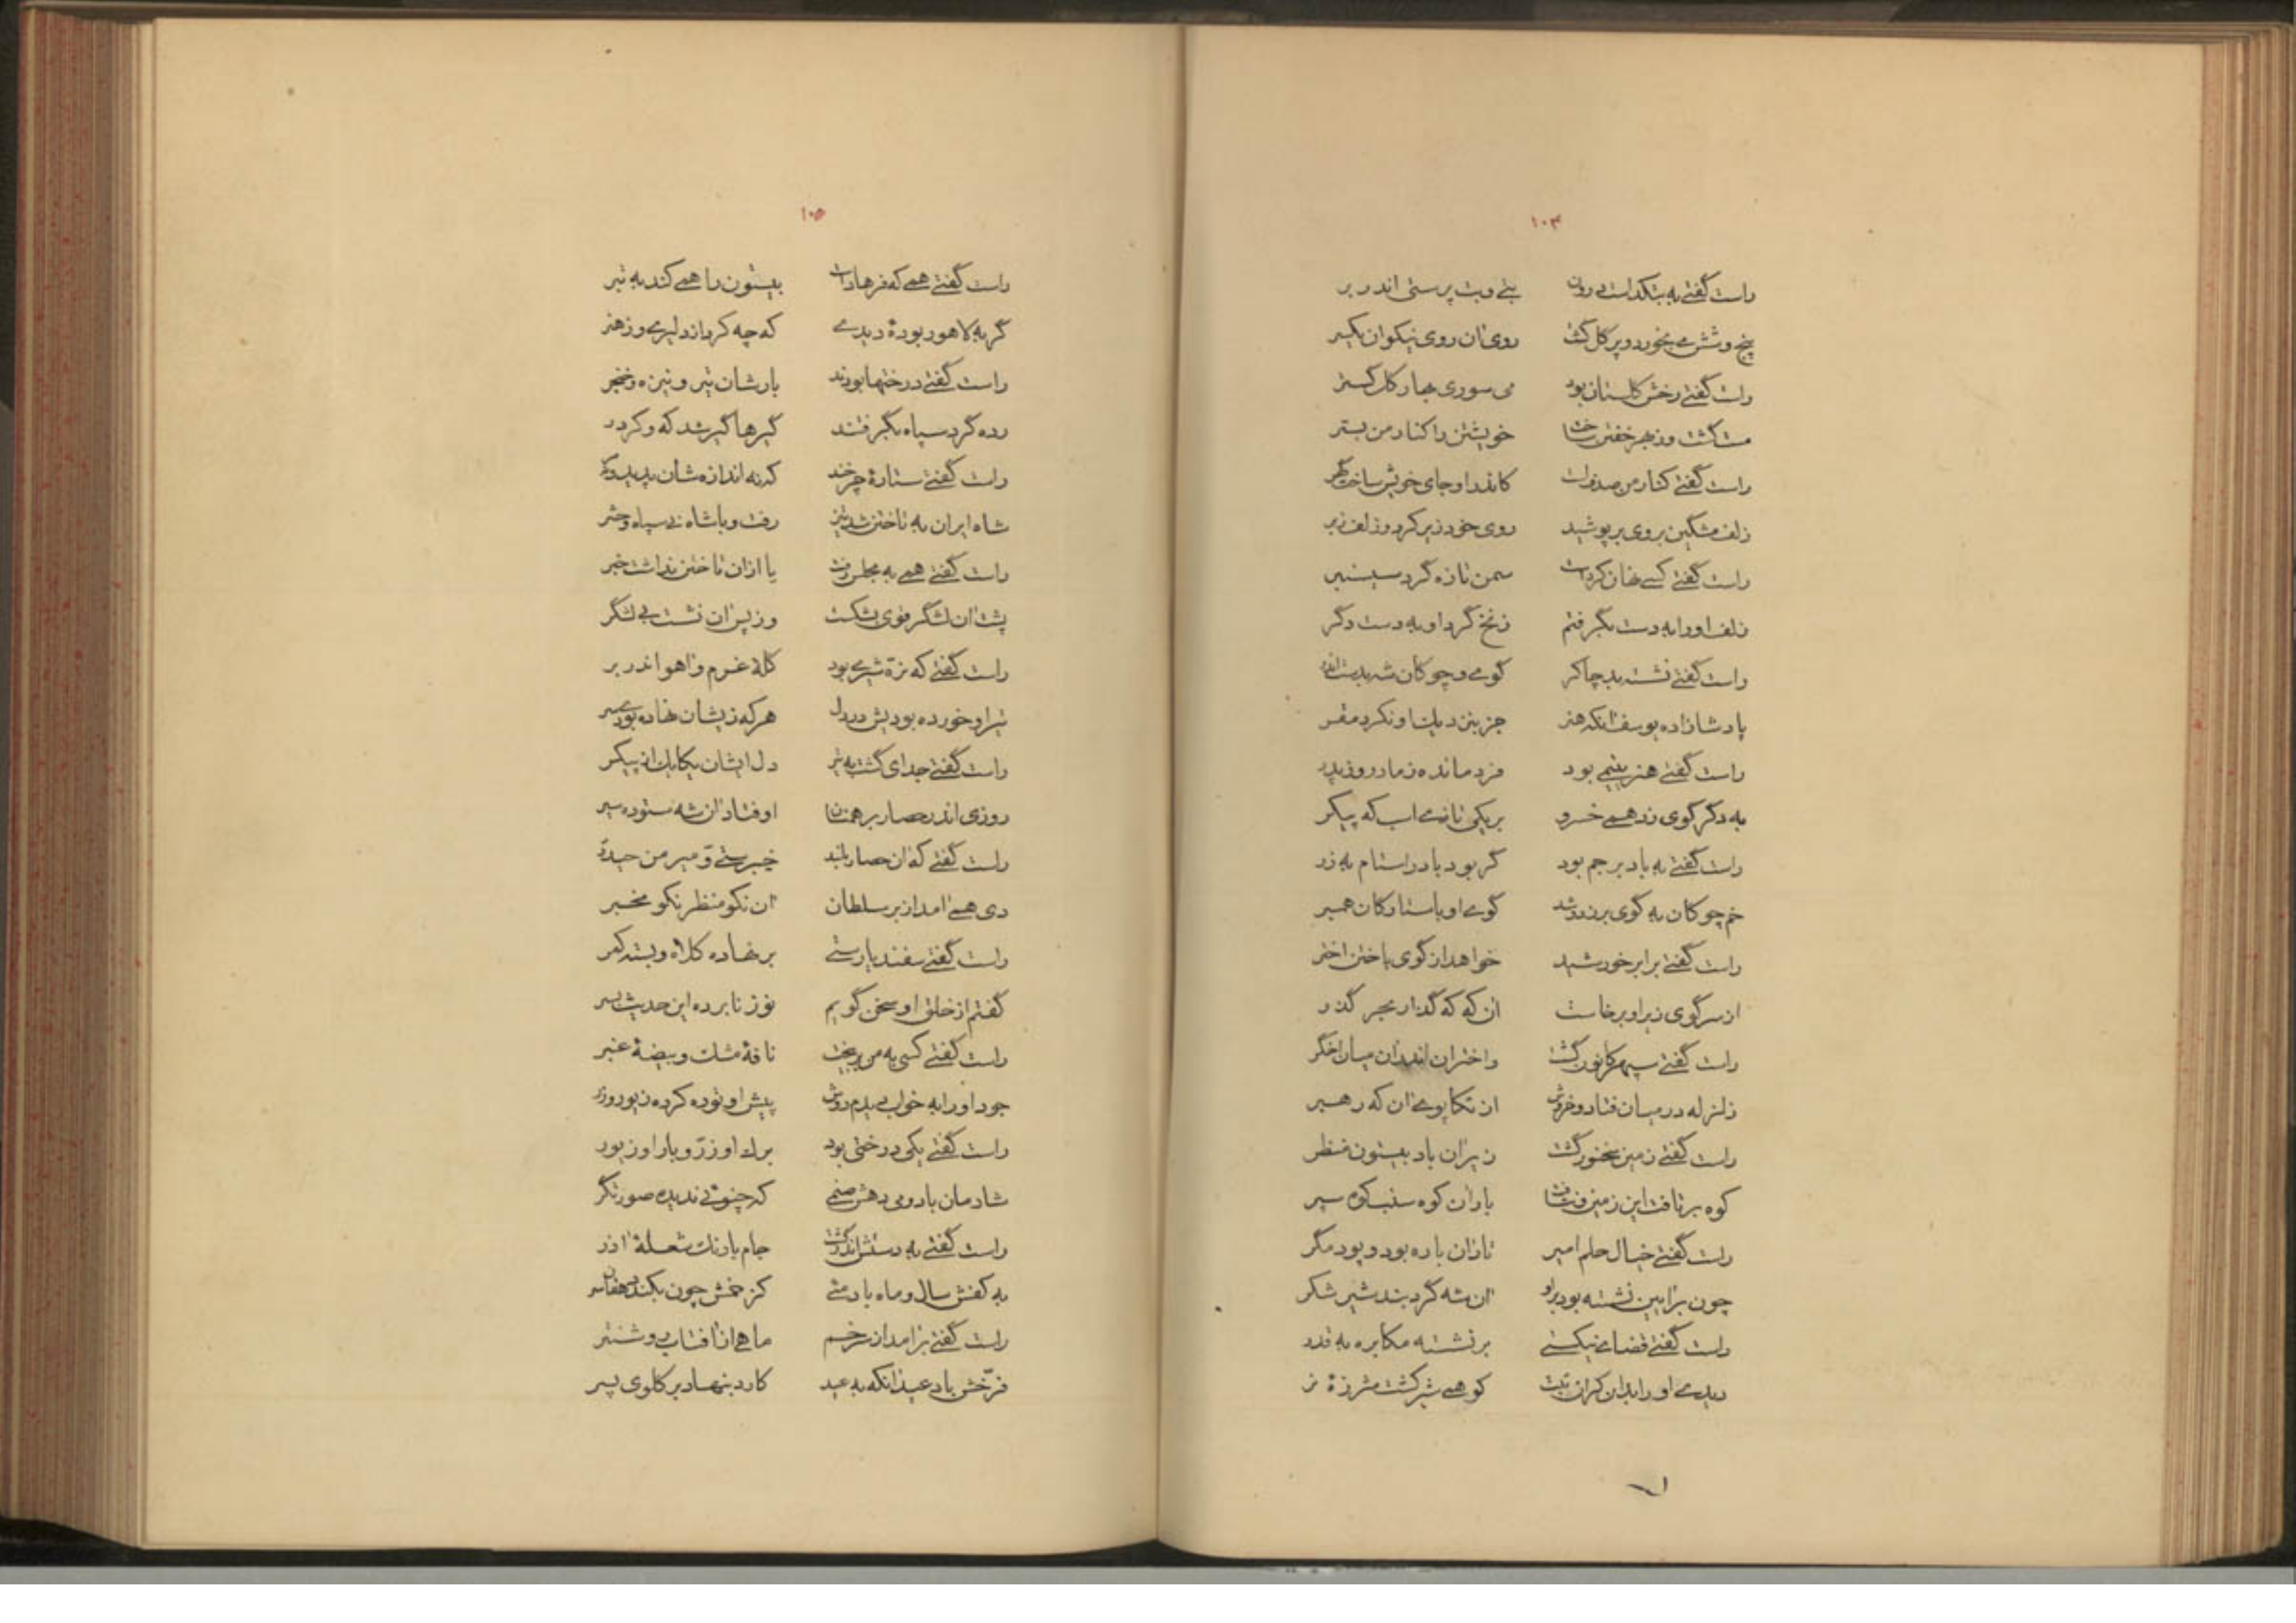 ۱۰۴
راست گفتی به بتکده است درون بتی و بت پرستی اندر بر
پنج و شش می بخورد و پر گل گشت روی آن روی نیکوان یکسر
راست گفتی رخش گلستان بود می سوری بهار گل گستر
مست گشت و ز بهر خفتن ساخت خویشتن را کنار من بستر
راست گفتی کنار من صدفست کاندرو جای خویش ساخت گهر
زلف مشکین بروی بر پوشید روی خود زیر کرد و زلف زبر
راست گفتی کسی نهان کردست سمن تازه گرد سیسنبر
زلف او را به دست بگرفتم زنخ گرد او به دست دگر
راست گفتی نشسته بد چاکر گوی و چوگان شه بدست اندر
پادشازاده یوسف آنکه هنر جز بنزدیک او نکرد مقر
راست گفتی هنر یتیم بود فرد مانده ز مادر و ز پدر
به دگر گوی زد همی خسرو بر یکی تازی اسب که پیکر
راست گفتی به باد بر جم بود گر بود باد را ستام به زر
خم چوگان به گوی بر زد و شد گوی او با ستارگان همبر
راست گفتی برابر خورشید خواهد از گوی باختن اختر
از سر گوی زیر او برخاست آن که که گذار بحر گذر
راست گفتی سپهر کانون گشت و اختران اندر آن میان اخگر
زلزله در میان فتاد و خروش از تکاپوی آن که رهبر
راست گفتی زمین بخورد گشت زیر آن باد بیستون منظر
کوه برتافت این زمین و نتافت بار آن کوه سنب کوه سپر
راست گفتی خیال حلم امیر تا زآن باره بود و بود مگر
چون بر آیین نشسته بود برو آن شه گرد بند شیر شکر
راست گفتی قضای نیکستی بر نشسته مکابره به قدر
دیدی او را بدان گران تبت کو همی شیر کشت شرزه نر
۱۰۵
راست گفتی همی که فرهادست بیستون را همی کند به تبر
گر به لاهور بوده دیدی که چه کرد از دلیری و ز هنر
راست گفتی درختها بودند بارشان تیر و نیزه و خنجر
رده گرد سپاه بگرفتند گیرها گیر شد که و کردر
راست گفتی ستاره چرخند که نه اندازه شان پدید و نه مر
شاه ایران به تاختن شد تیز رفت و با شاه نی سپاه و حشر
راست گفتی همی به مجلس رفت یا ازان تاختن نداشت خبر
پشت آن لشگر قوی بشکست وز پس آن نشست بی لشگر
راست گفتی که نره شیری بود گله غرم و آهو اندر بر
تیر او خورده بود پیش در دل هر که زیشان نهاده بودی سر
راست گفتی جدای گشت به تیر دل ایشان یکایک از پیکر
روزی اندر حصار برهمنان اوفتاد آن شه ستوده سیر
راست گفتی که آن حصار بلند خیبرستی و میر من حیدر
دی همی آمد از بر سلطان آن نکو منظر نکو مخبر
راست گفتی سفندیارستی بر نهاده کلاه و بسته کمر
گفتم از خلق او سخن گویم نوز نابرده این حدیث بسر
راست گفتی کسی به من بر بیخت نافه مشک و بیضه عنبر
جود او را به خواب دیدم دوش پیش او توده کرده زیور و زر
راست گفتی یکی درختی بود برگ او زر و بار او زیور
شادمان باد و می دهش صنمی که چنویی ندیده صورتگر
راست گفتی به دستش اندر گشت جام بارنگ شعله آذر
به کفش سال و ماه باد می کز خمش چون بکند دهقان سر
راست گفتی بر آمد از سر خم ماهی از آفتاب روشنتر
فرخش باد عید آنکه به عید کارد بنهاد بر گلوی پسر